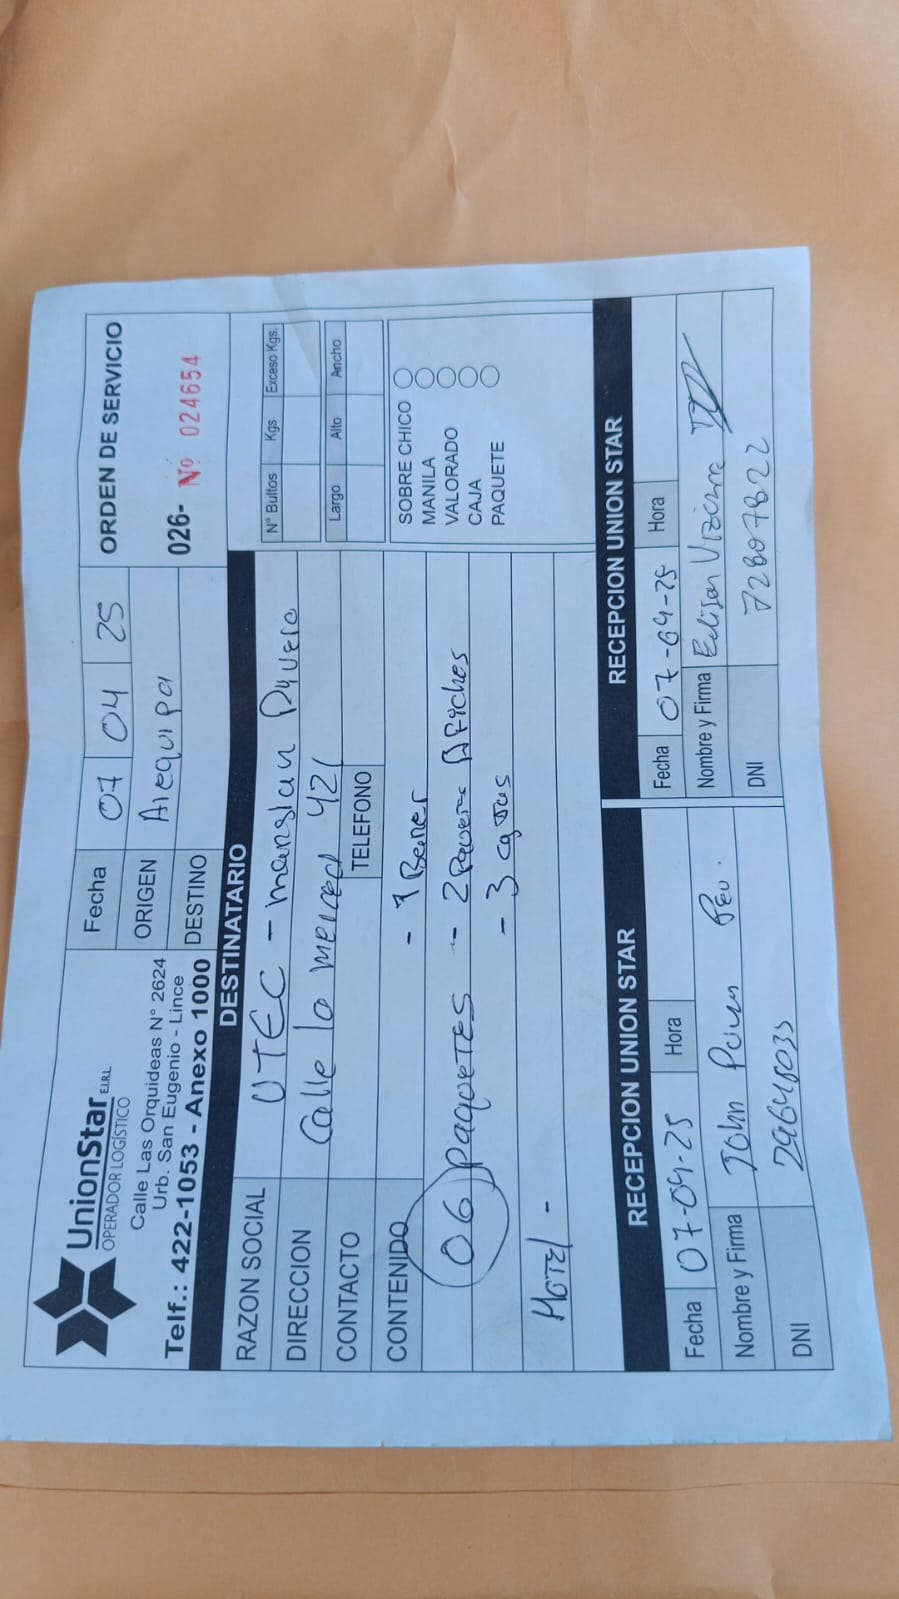 UnionStar E.I.R.L.
OPERADOR LOGÍSTICO
Calle Las Orquideas N° 2624
Urb. San Eugenio - Lince
Telf.: 422-1053 - Anexo 1000
Fecha 07 04 25
ORIGEN Arequipa
DESTINO
ORDEN DE SERVICIO
026- Nº 024654
DESTINATARIO
RAZON SOCIAL UTEC - mansion
DIRECCION Calle la merced 421
CONTACTO
TELEFONO
CONTENIDO - 1 Baner
06 paquetes - 2 Afiches
- 3 cajas
HOTEL -
N° Bultos Kgs Exceso Kgs.
Largo Alto Ancho
SOBRE CHICO
MANILA
VALORADO
CAJA
PAQUETE
RECEPCION UNION STAR
Fecha 07-04-25 Hora
Nombre y Firma John
DNI 29648035
RECEPCION UNION STAR
Fecha 07-04-25 Hora
Nombre y Firma Edison
DNI 72807822